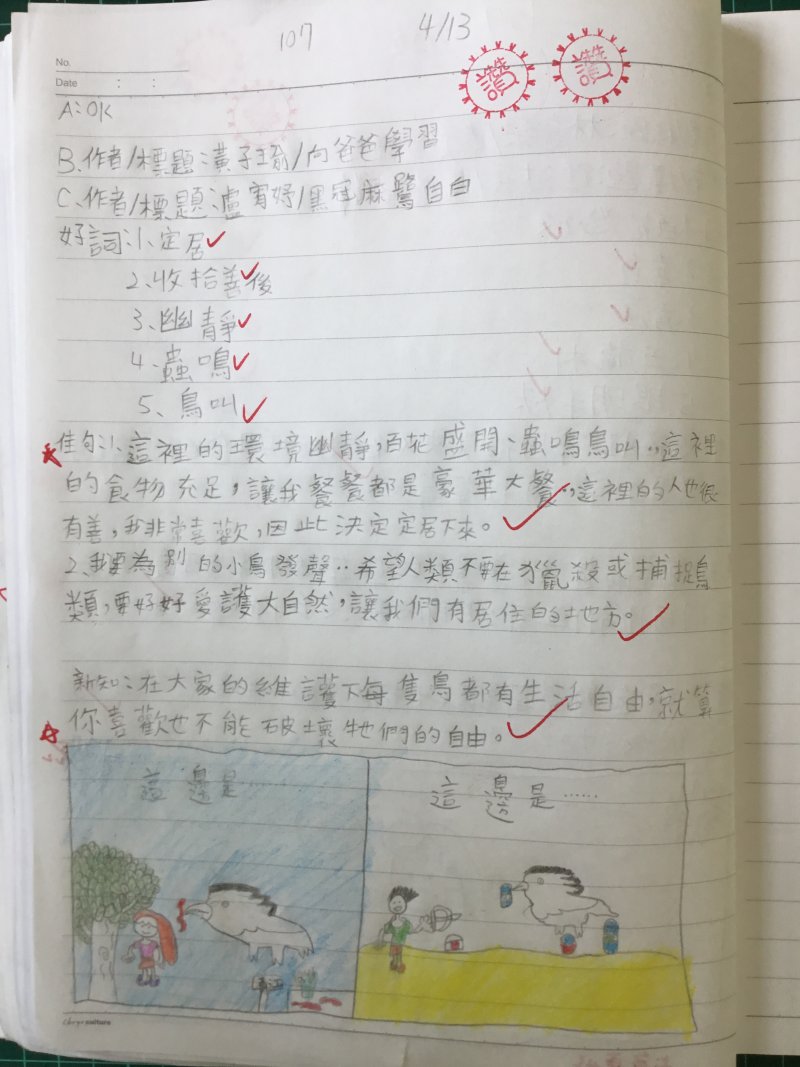 107 4/13
No.
Date : :
讚 讚
A:OK
B、作者/標題:黃子瑜/向爸爸學習
C、作者/標題:盧宥妤/黑冠麻鷺自白
好詞:1、定居
2、收拾善後
3、幽靜
4、蟲鳴
5、鳥叫
佳句:1、這裡的環境幽靜,百花盛開、蟲鳴鳥叫,這裡
的食物充足,讓我餐餐都是豪華大餐,這裡的人也很
有善,我非常喜歡,因此決定定居下來。
2、我要為別的小鳥發聲:希望人類不要在獵殺或捕捉鳥
類,要好好愛護大自然,讓我們有居住的地方。
新知:在大家的維護下每隻鳥都有生活自由,就算
你喜歡也不能破壞牠們的自由。
這邊是…… 這邊是……